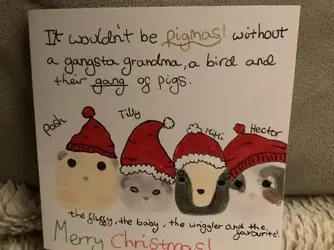 It wouldn't be pigmas! without
a gangsta grandma, a bird and
their gang of pigs.
posh
Tilly
Kiki
Hector
the fluffy, the baby, the wriggler and the favourite!
Merry Christmas!